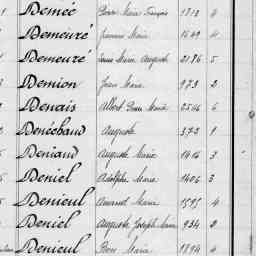 Demée Pierre Marie François 1313 4
Demeuré Jeanne Marie 1549 4
Demeuré Marie Auguste 2186 5
Demion Jean Marie 973 2
Denais Albert Pierre Marie 2546 6
Denéchaud Auguste 373 1
Deniaud Auguste Marie 1416 3
Deniel Adolphe Marie 1406 3
Denieul Amant Marie 1595 4
Deniel Auguste Joseph Marie 934 2
Denieul Pierre Marie 1894 4